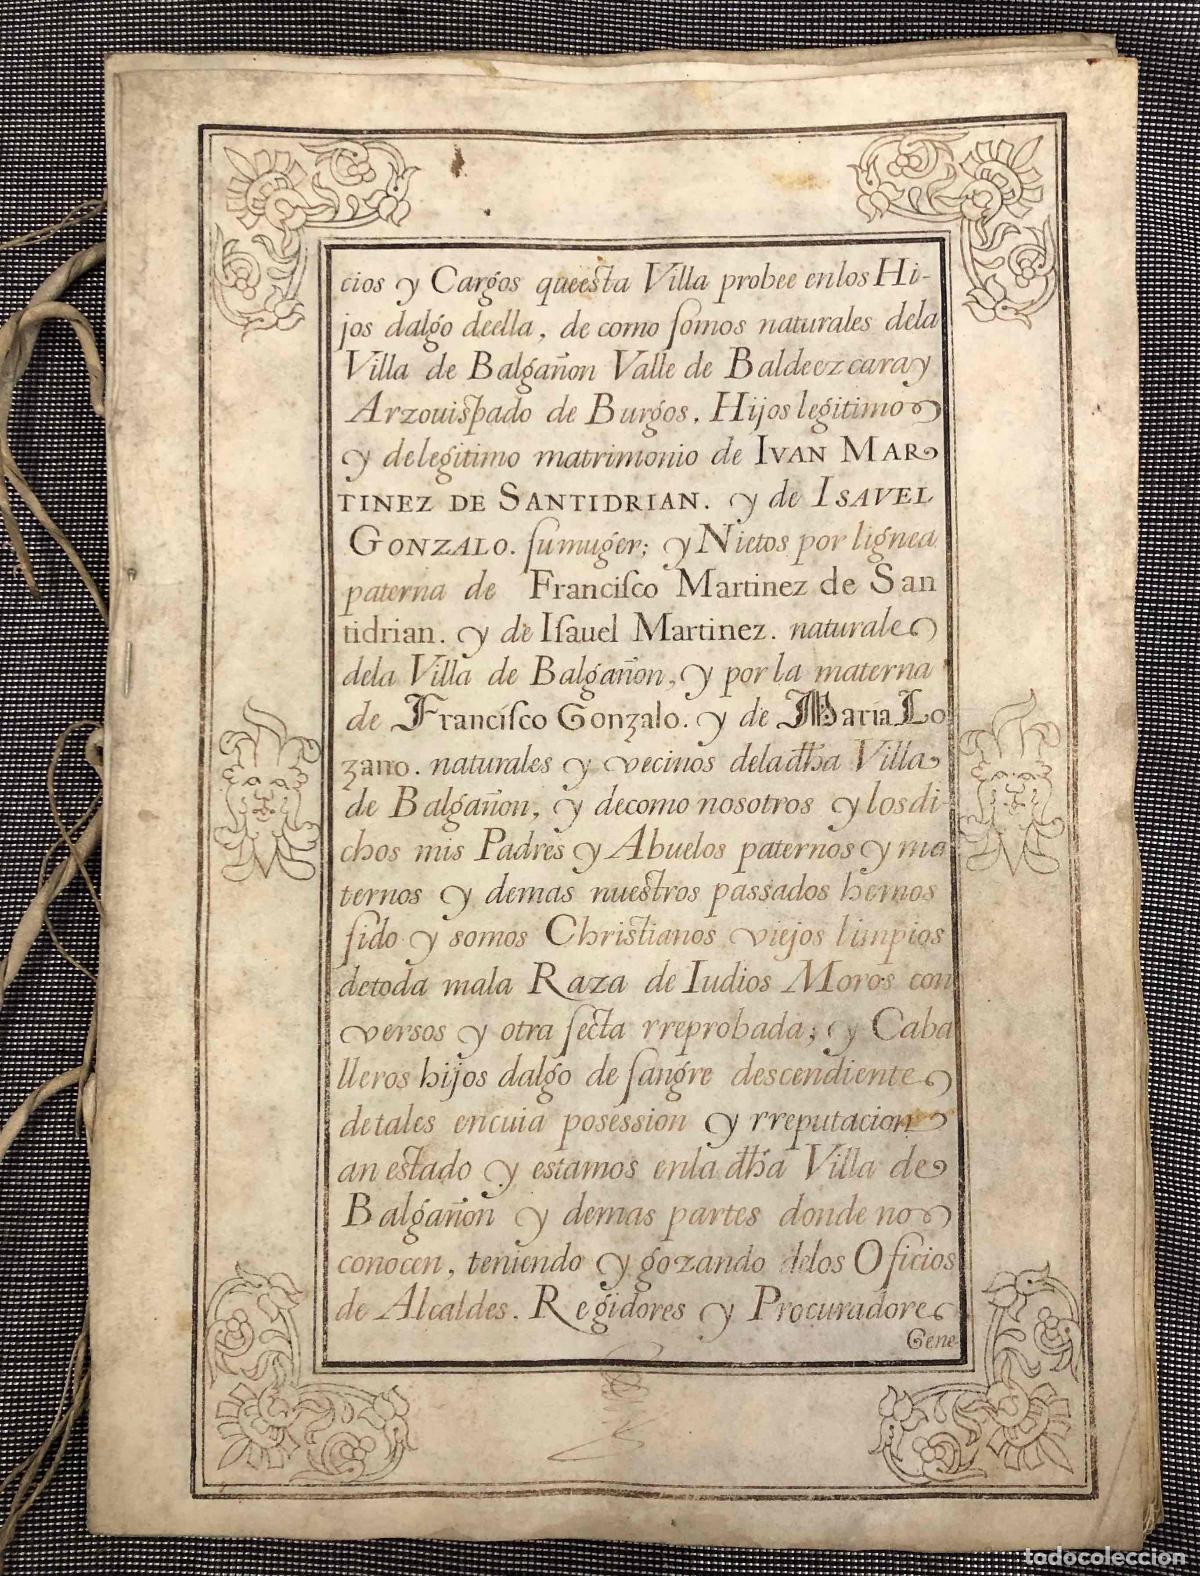 cios y Cargos queesta Villa probee enlos Hi-
jos dalgo deella, de como somos naturales dela
Villa de Balgañon Valle de Baldeezcaray
Arzouispado de Burgos. Hijos legitimos
y delegitimo matrimonio de IVAN MAR
TINEZ DE SANTIDRIAN. y de ISAVEL
GONZALO. su muger; y Nietos por lignea
paterna de Francisco Martinez de San
tidrian. y de Isauel Martinez. naturales
dela Villa de Balgañon, y por la materna
de Francisco Gonzalo. y de Maria Lo
zano. naturales y vecinos deladha Villa
de Balgañon, y decomo nosotros y losdi-
chos mis Padres y Abuelos paternos y ma
ternos y demas nuestros passados hemos
sido y somos Christianos viejos limpios
detoda mala Raza de Iudios Moros con
versos y otra secta rreprobada; y Caba
lleros hijos dalgo de sangre descendientes
detales encuia posession y rreputacion
an estado y estamos enla dha Villa de
Balgañon y demas partes donde nos
conocen, teniendo y gozando delos Oficios
de Alcaldes. Regidores y Procuradores
Gene
todocoleccion